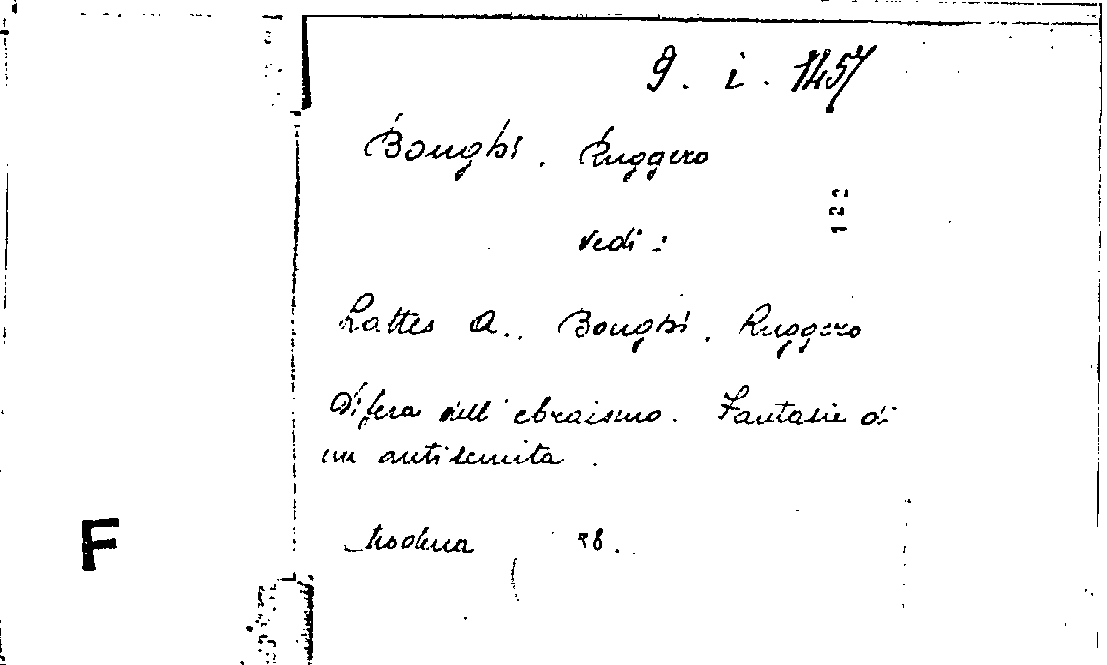 9. i. 1457
Bonghi. Ruggero
122
Vedi:
Lattes A., Bonghi. Ruggero
Difesa dell'ebraismo. Fantasie di
un antisemita.
Modena
F